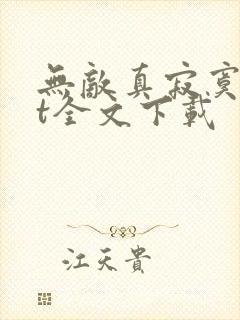 無敵真寂寞
t全文下載
江天貴